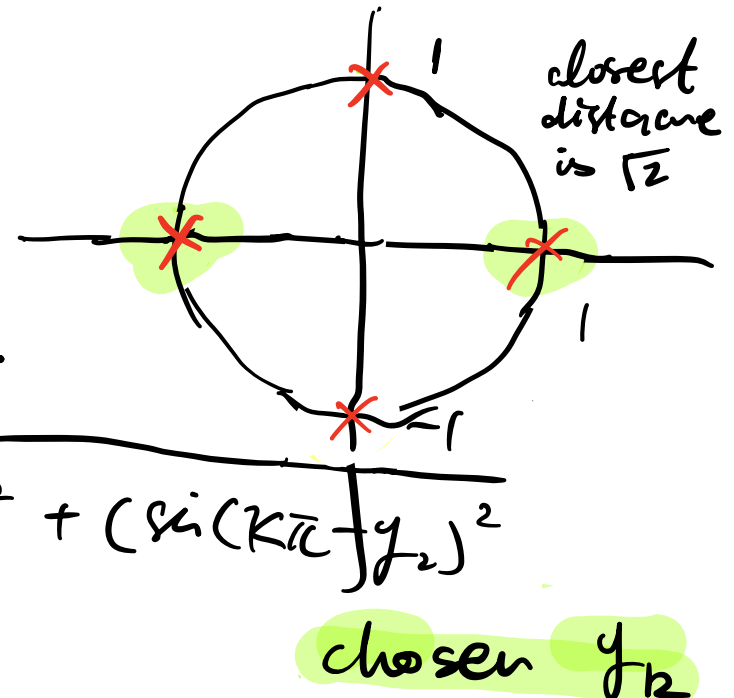 1
closest
distance
is √2
1
-1
2 + (sin(kπ - y₂)²
chosen yₖ